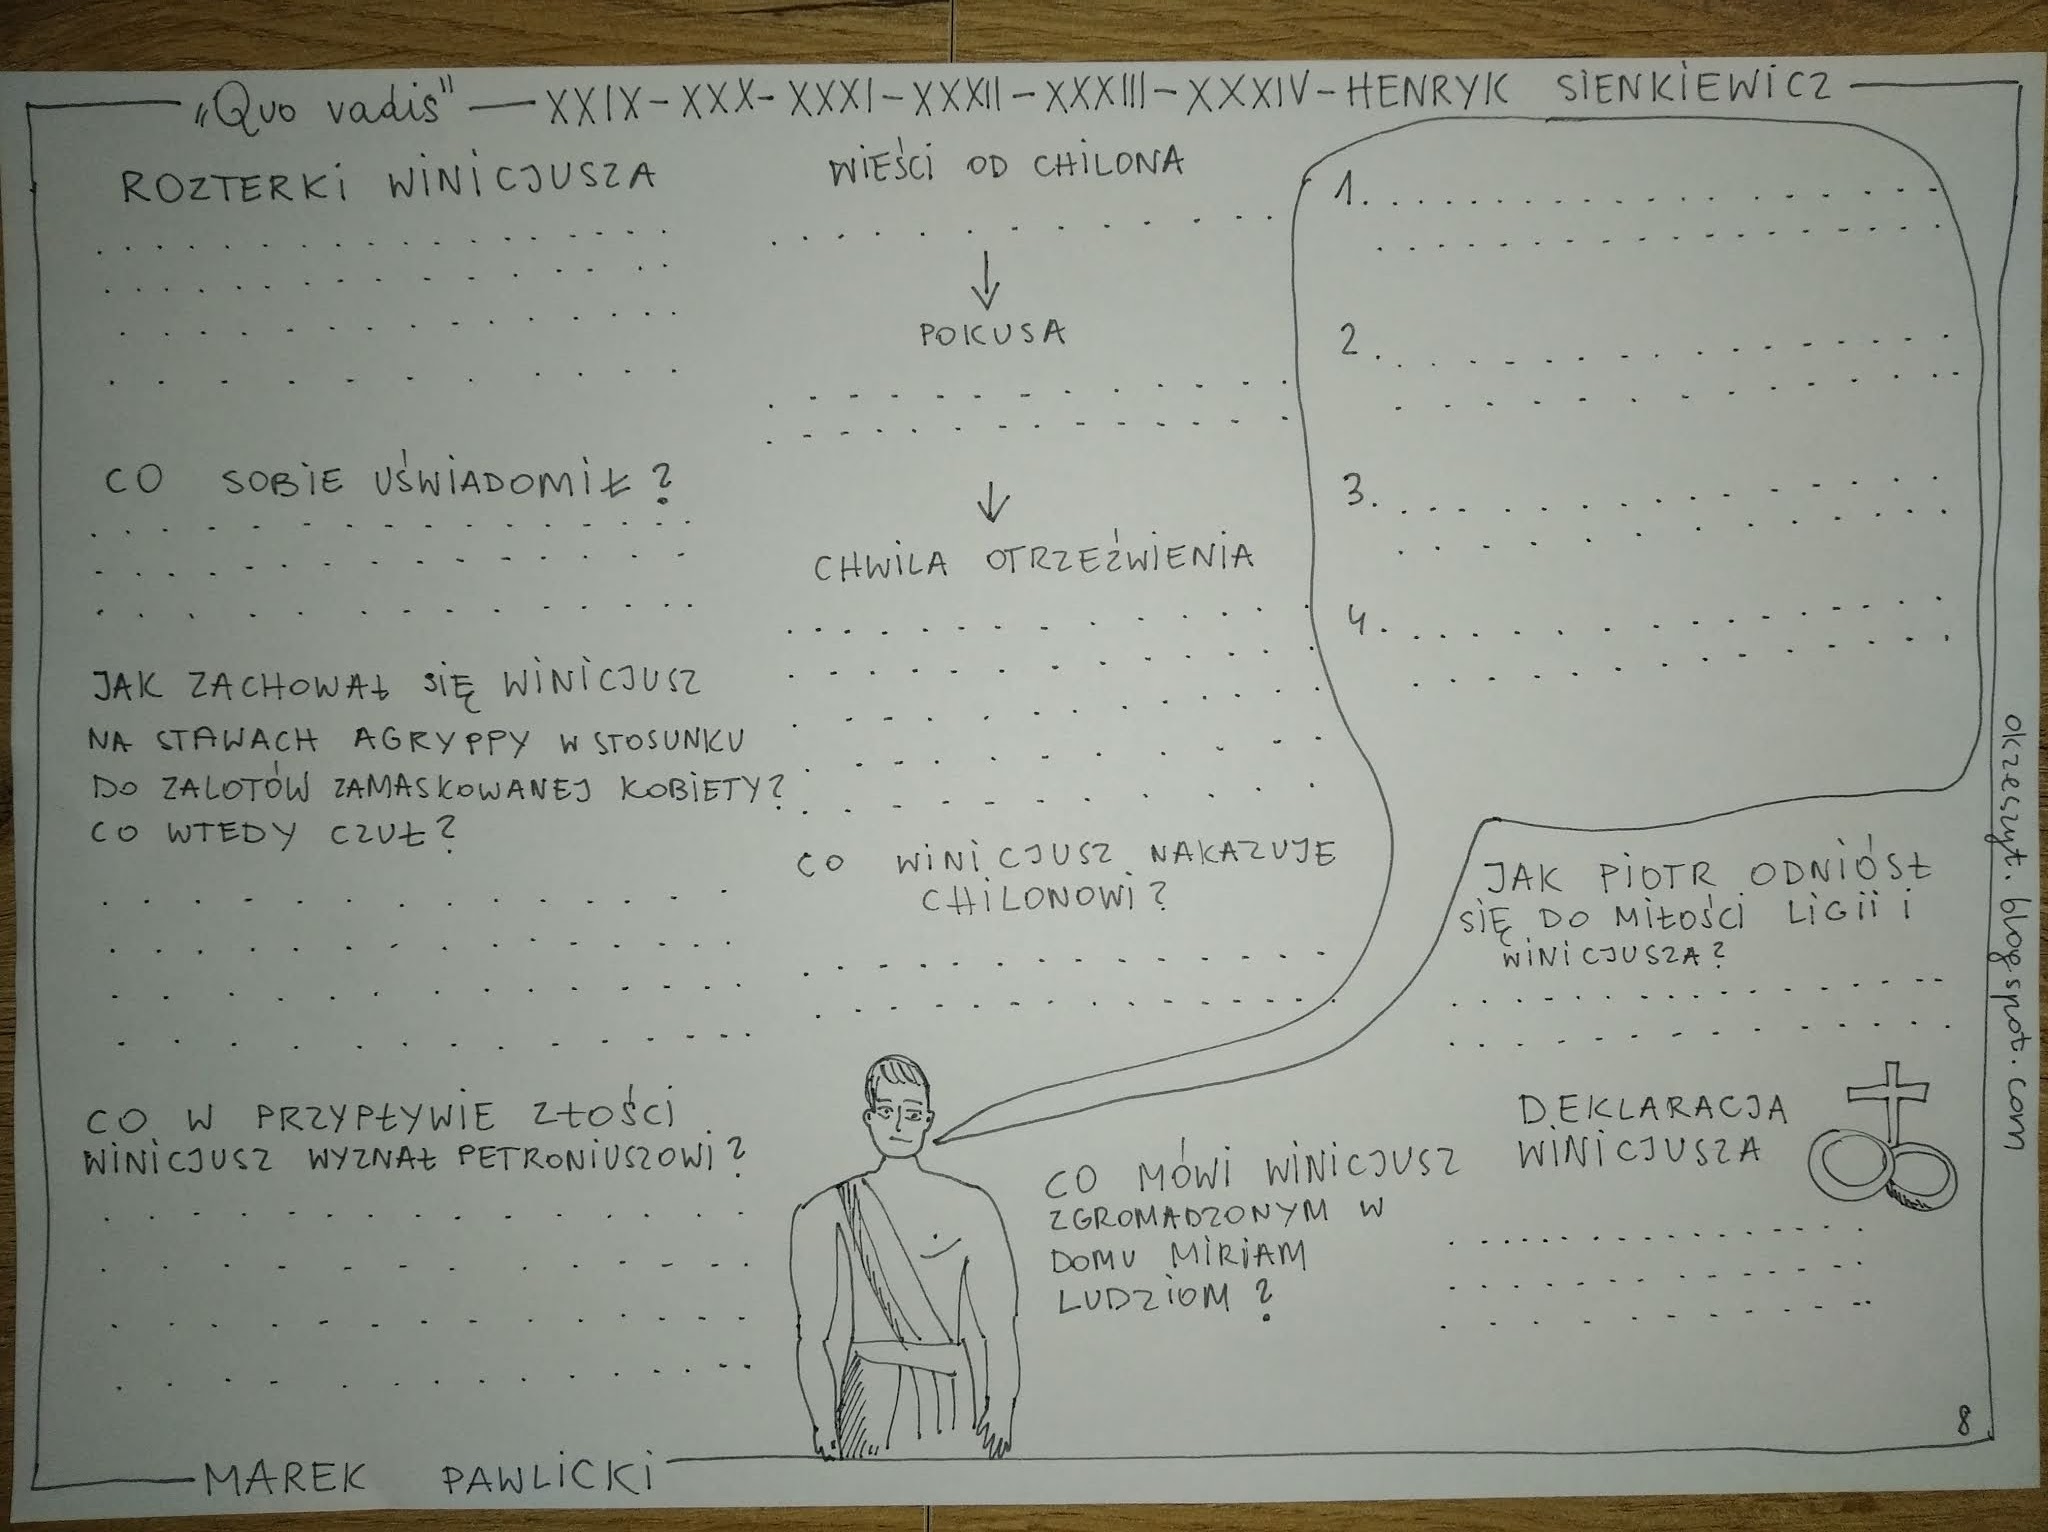 „Quo vadis" XXIX-XXX-XXXI-XXXII-XXXIII-XXXIV-HENRYK SIENKIEWICZ
ROZTERKI WINICJUSZA
CO SOBIE UŚWIADOMIŁ?
JAK ZACHOWAŁ SIĘ WINICJUSZ
NA STAWACH AGRYPPY W STOSUNKU
DO ZALOTÓW ZAMASKOWANEJ KOBIETY?
CO WTEDY CZUŁ?
CO W PRZYPŁYWIE ZŁOŚCI
WINICJUSZ WYZNAŁ PETRONIUSZOWI?
WIEŚCI OD CHILONA
POKUSA
CHWILA OTRZEŹWIENIA
CO WINICJUSZ NAKAZUJE
CHILONOWI?
1.
2.
3.
4.
CO MÓWI WINICJUSZ
ZGROMADZONYM W
DOMU MIRIAM
LUDZIOM?
JAK PIOTR ODNIÓSŁ
SIĘ DO MIŁOŚCI LIGII I
WINICJUSZA?
DEKLARACJA
WINICJUSZA
8
MAREK PAWLICKI
okzeszyt.blogspot.com